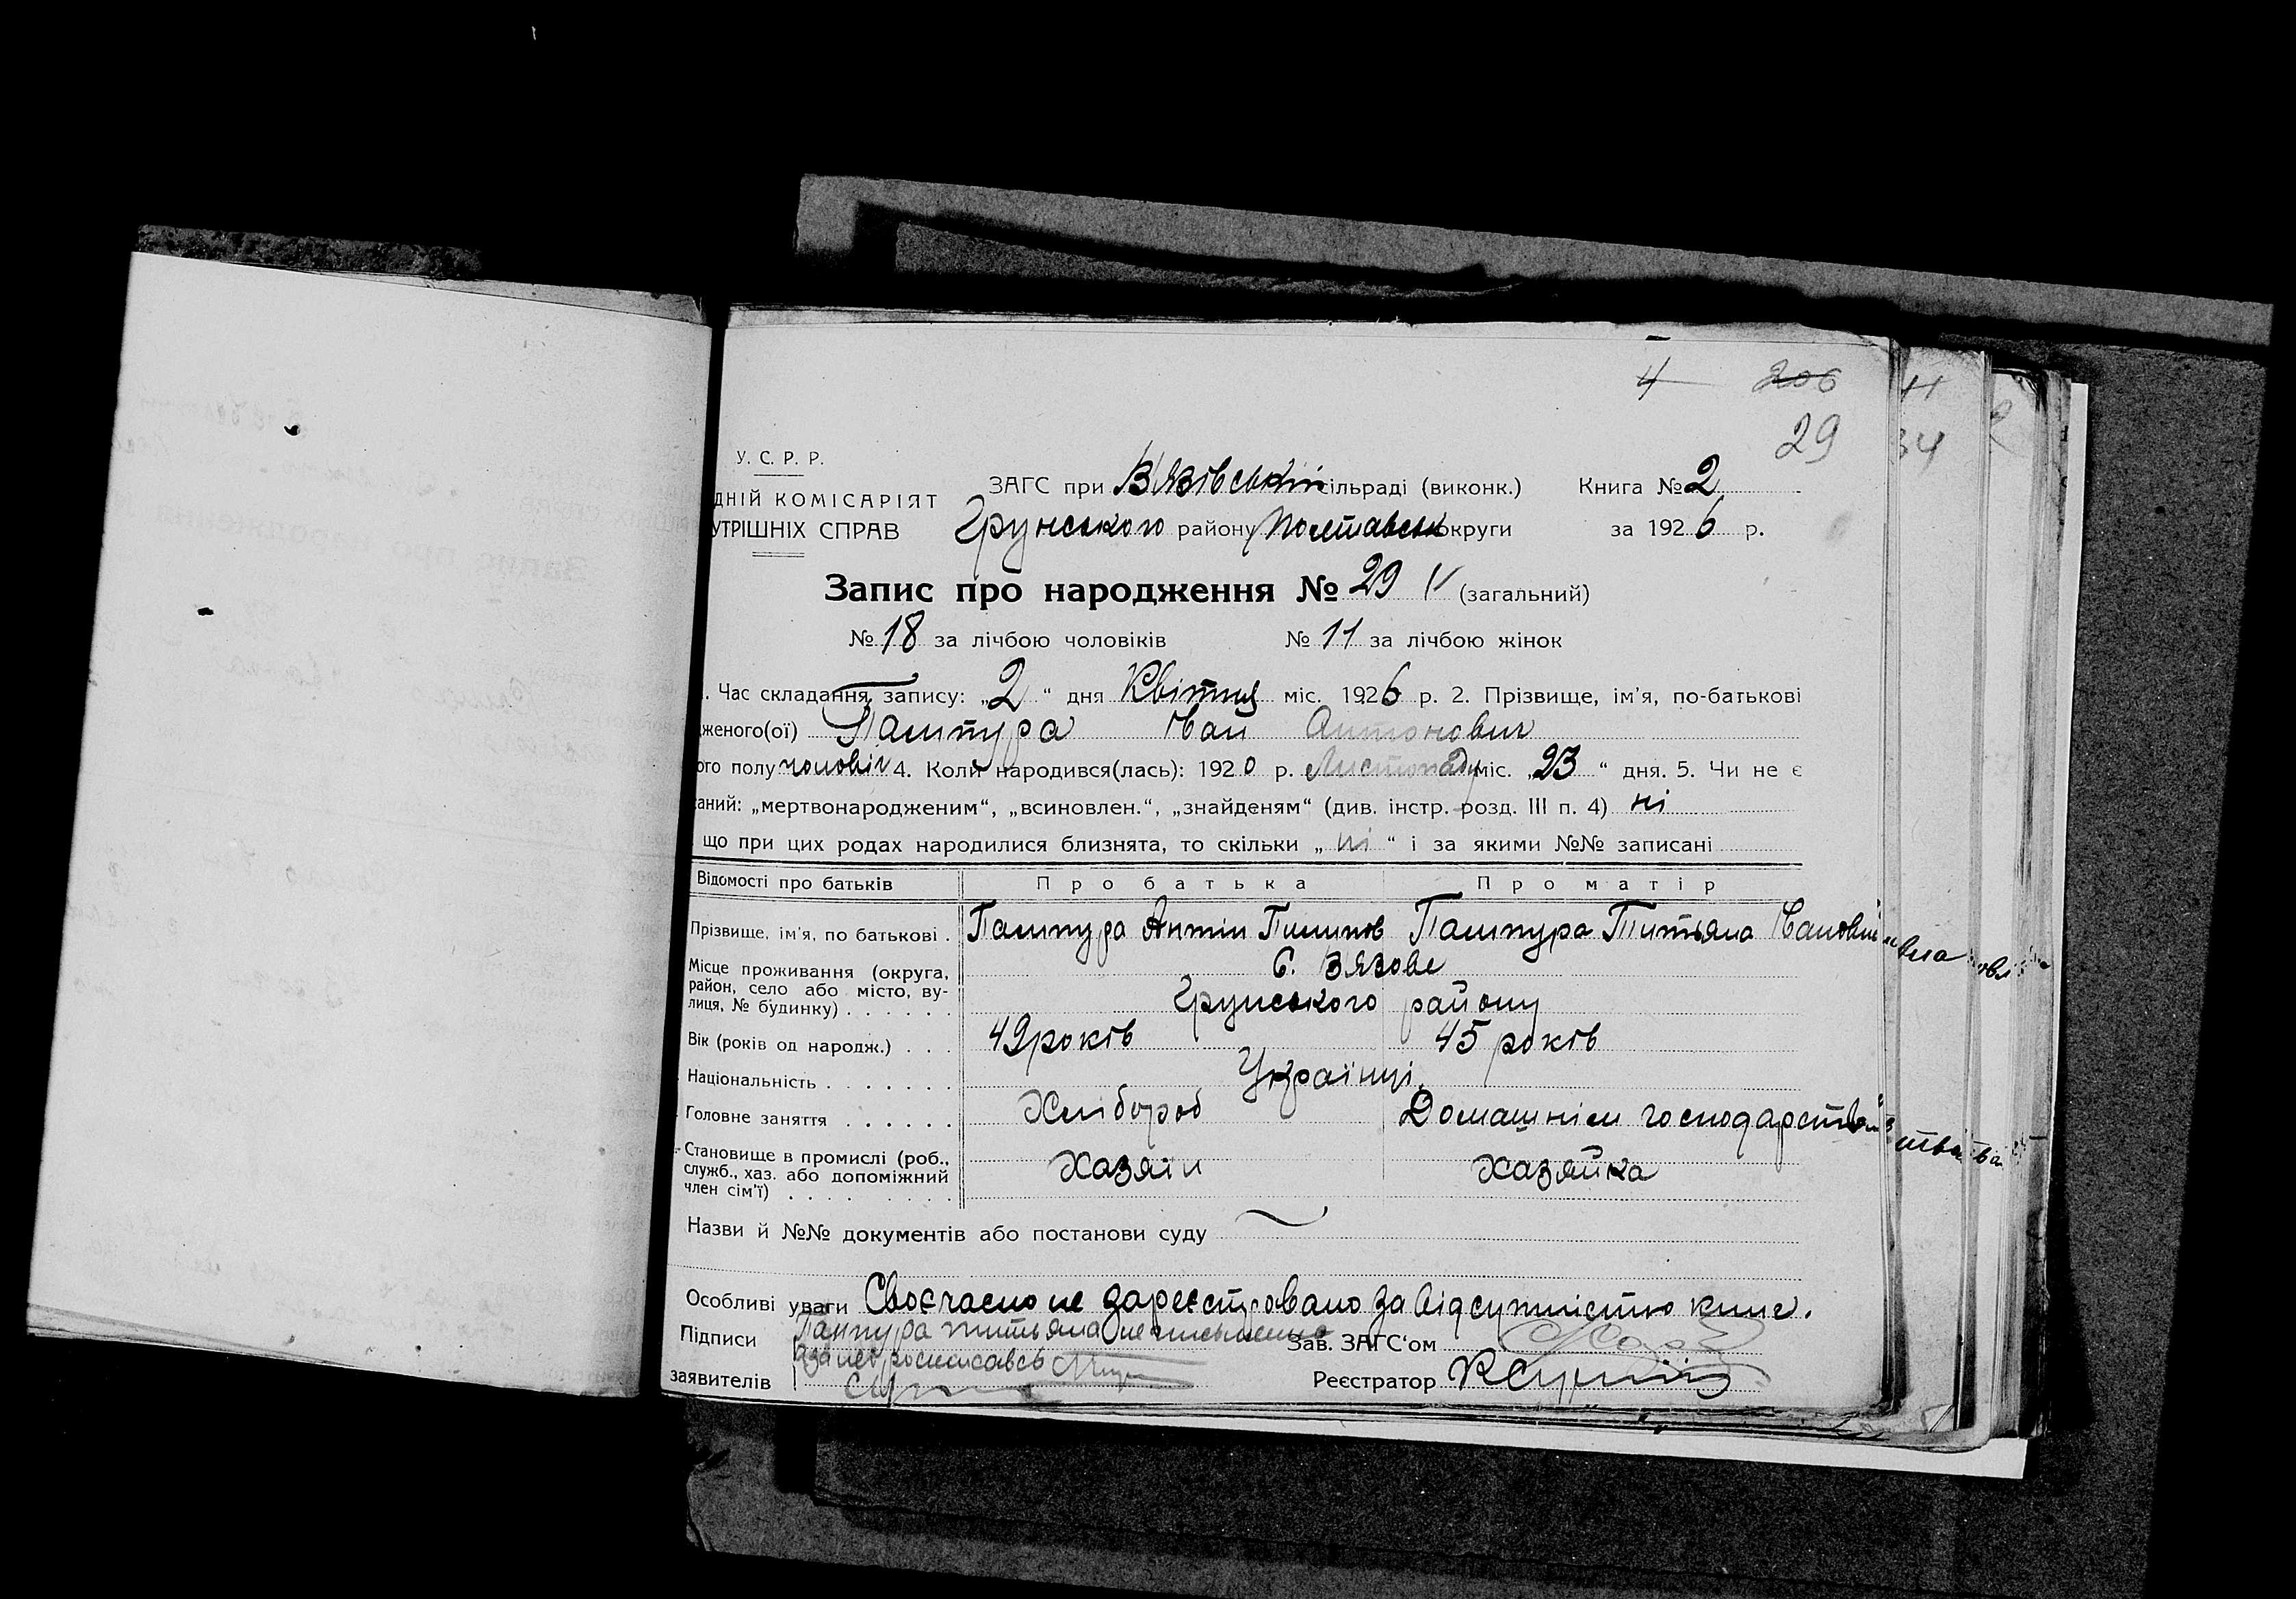 4 206
29
У. С. Р. Р.
ЗАГС при В'язівській сільраді (виконк.) Книга № 2
ДНІЙ КОМІСАРІЯТ
УТРІШНІХ СПРАВ Грунського району Полтавськ округи за 1926 р.
Запис про народження № 29 (загальний)
№ 18 за лічбою чоловіків № 11 за лічбою жінок
. Час складання запису: „2“ дня Квітня міс. 1926 р. 2. Прізвище, ім'я, по-батькові
женого(ої) Паштура Іван Антонович
ого полу чоловіч 4. Коли народився(лась): 1920 р. Листопаду міс. „23“ дня. 5. Чи не є
аний: „мертвонародженим“, „всиновлен.“, „знайденям“ (див. інстр. розд. III п. 4) ні
що при цих родах народилися близнята, то скільки „ні“ і за якими №№ записані
Відомості про батьків Про батька Про матір
Прізвище, ім'я, по батькові . Паштура Антін Пилипов Паштура Титьяна Іванов
Місце проживання (округа,
район, село або місто, ву-
лиця, № будинку) . . . . . . С. Вязове
Грунського району
Вік (років од народж.) . . . 49 років 45 років
Національність . . . . . . . Українці
Головне заняття . . . . . . Хлібороб Домашнім господарств
Становище в промислі (роб.,
служб., хаз. або допоміжний
член сім'ї) . . . . . . . . . Хазяін Хазяйка
Назви й №№ документів або постанови суду
Особливі уваги Своєчасно не зареєстровано за відсутністю книг.
Підписи Паштура титьяна неписьменна
Зав. ЗАГС'ом
а за неї росписавсь
заявителів
Реєстратор
34